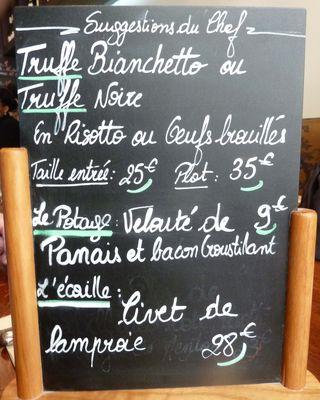 Suggestions du Chef
Truffe Bianchetto ou
Truffe Noire
En Risotto ou Oeufs brouillés
Taille entrée: 25€ Plat: 35€
Le Potage: Velouté de 9€
Panais et bacon Croustillant
L'écaille:
Civet de
lamproie 28€